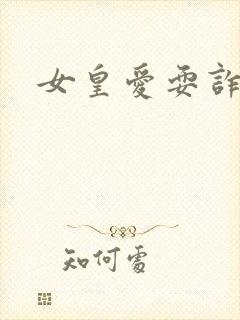 女皇愛耍詐
知何處